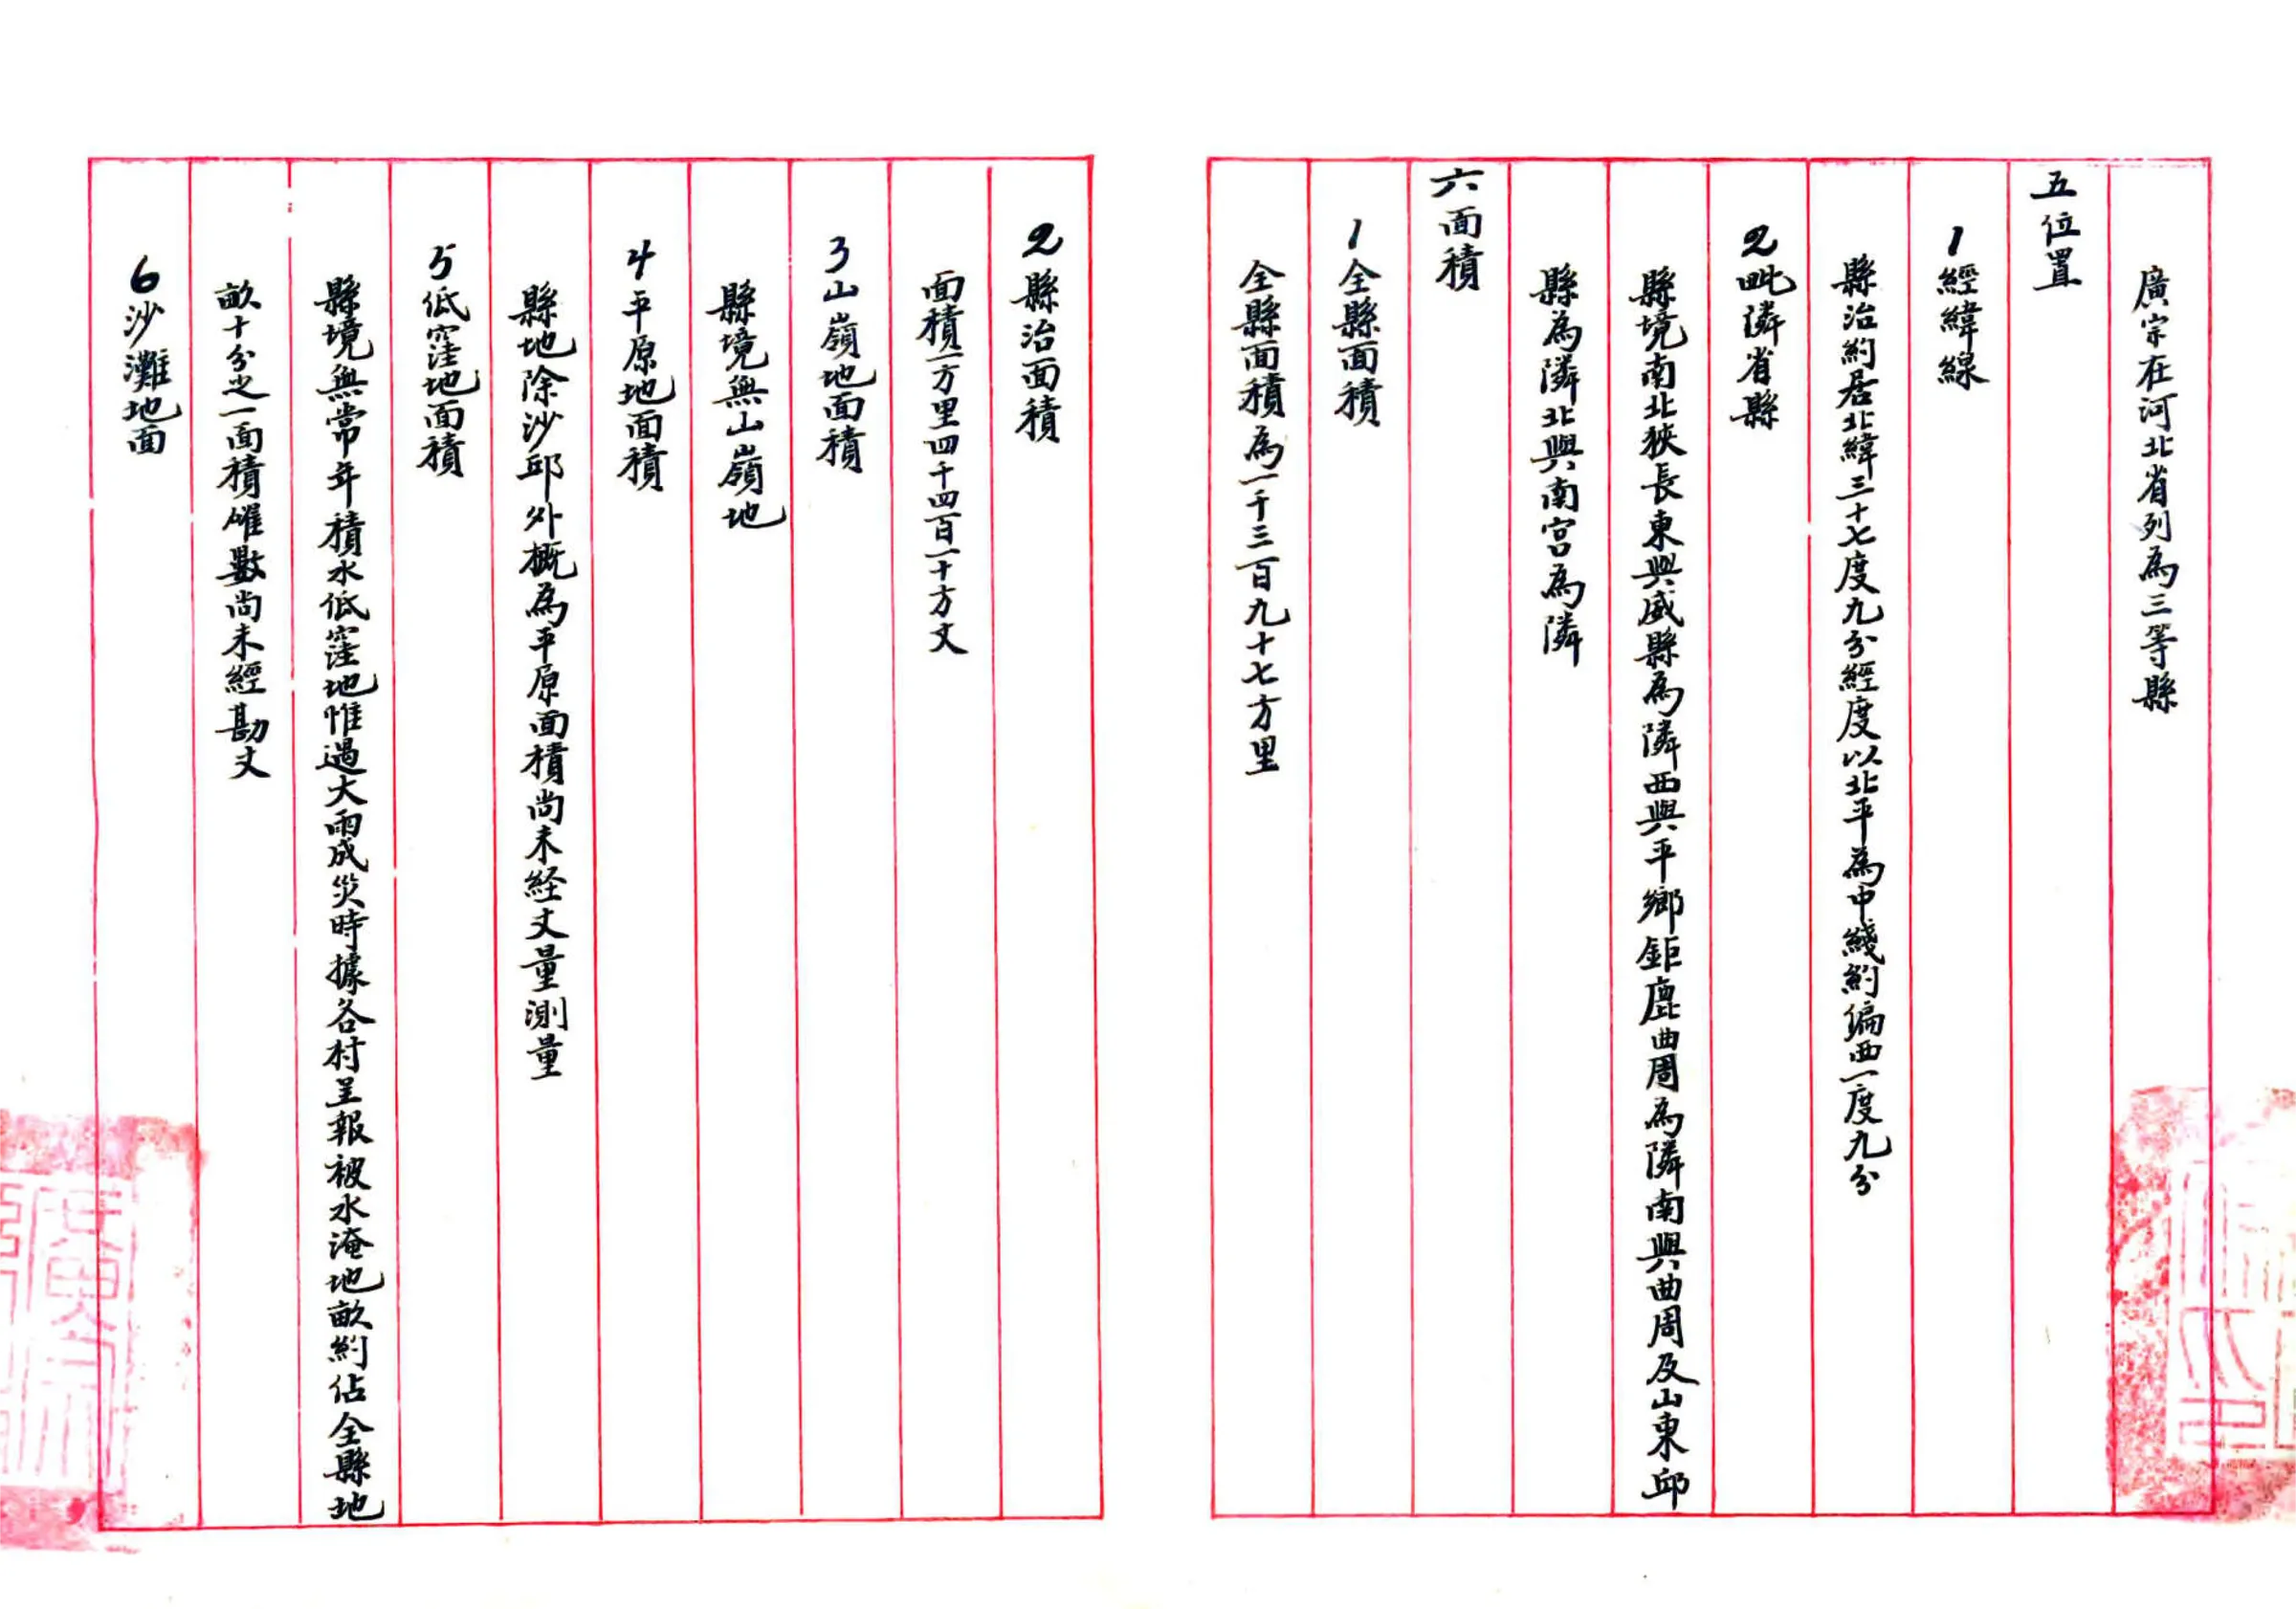 廣宗在河北省列為三等縣
五位置
1經緯線
縣治約居北緯三十七度九分經度以北平為中綫約偏西一度九分
2毗隣省縣
縣境南北狹長東與威縣為隣西與平鄉鉅鹿曲周為隣南與曲周及山東邱
縣為隣北與南宮為隣
六面積
1全縣面積
全縣面積為一千三百九十七方里
2縣治面積
面積一方里四千四百一十方丈
3山嶺地面積
縣境無山嶺地
4平原地面積
縣地除沙邱外概為平原面積尚未経丈量測量
5低窪地面積
縣境無常年積水低窪地惟遇大雨成災時據各村呈報被水淹地畝約佔全縣地
畝十分之一面積確數尚未經勘丈
6沙灘地面